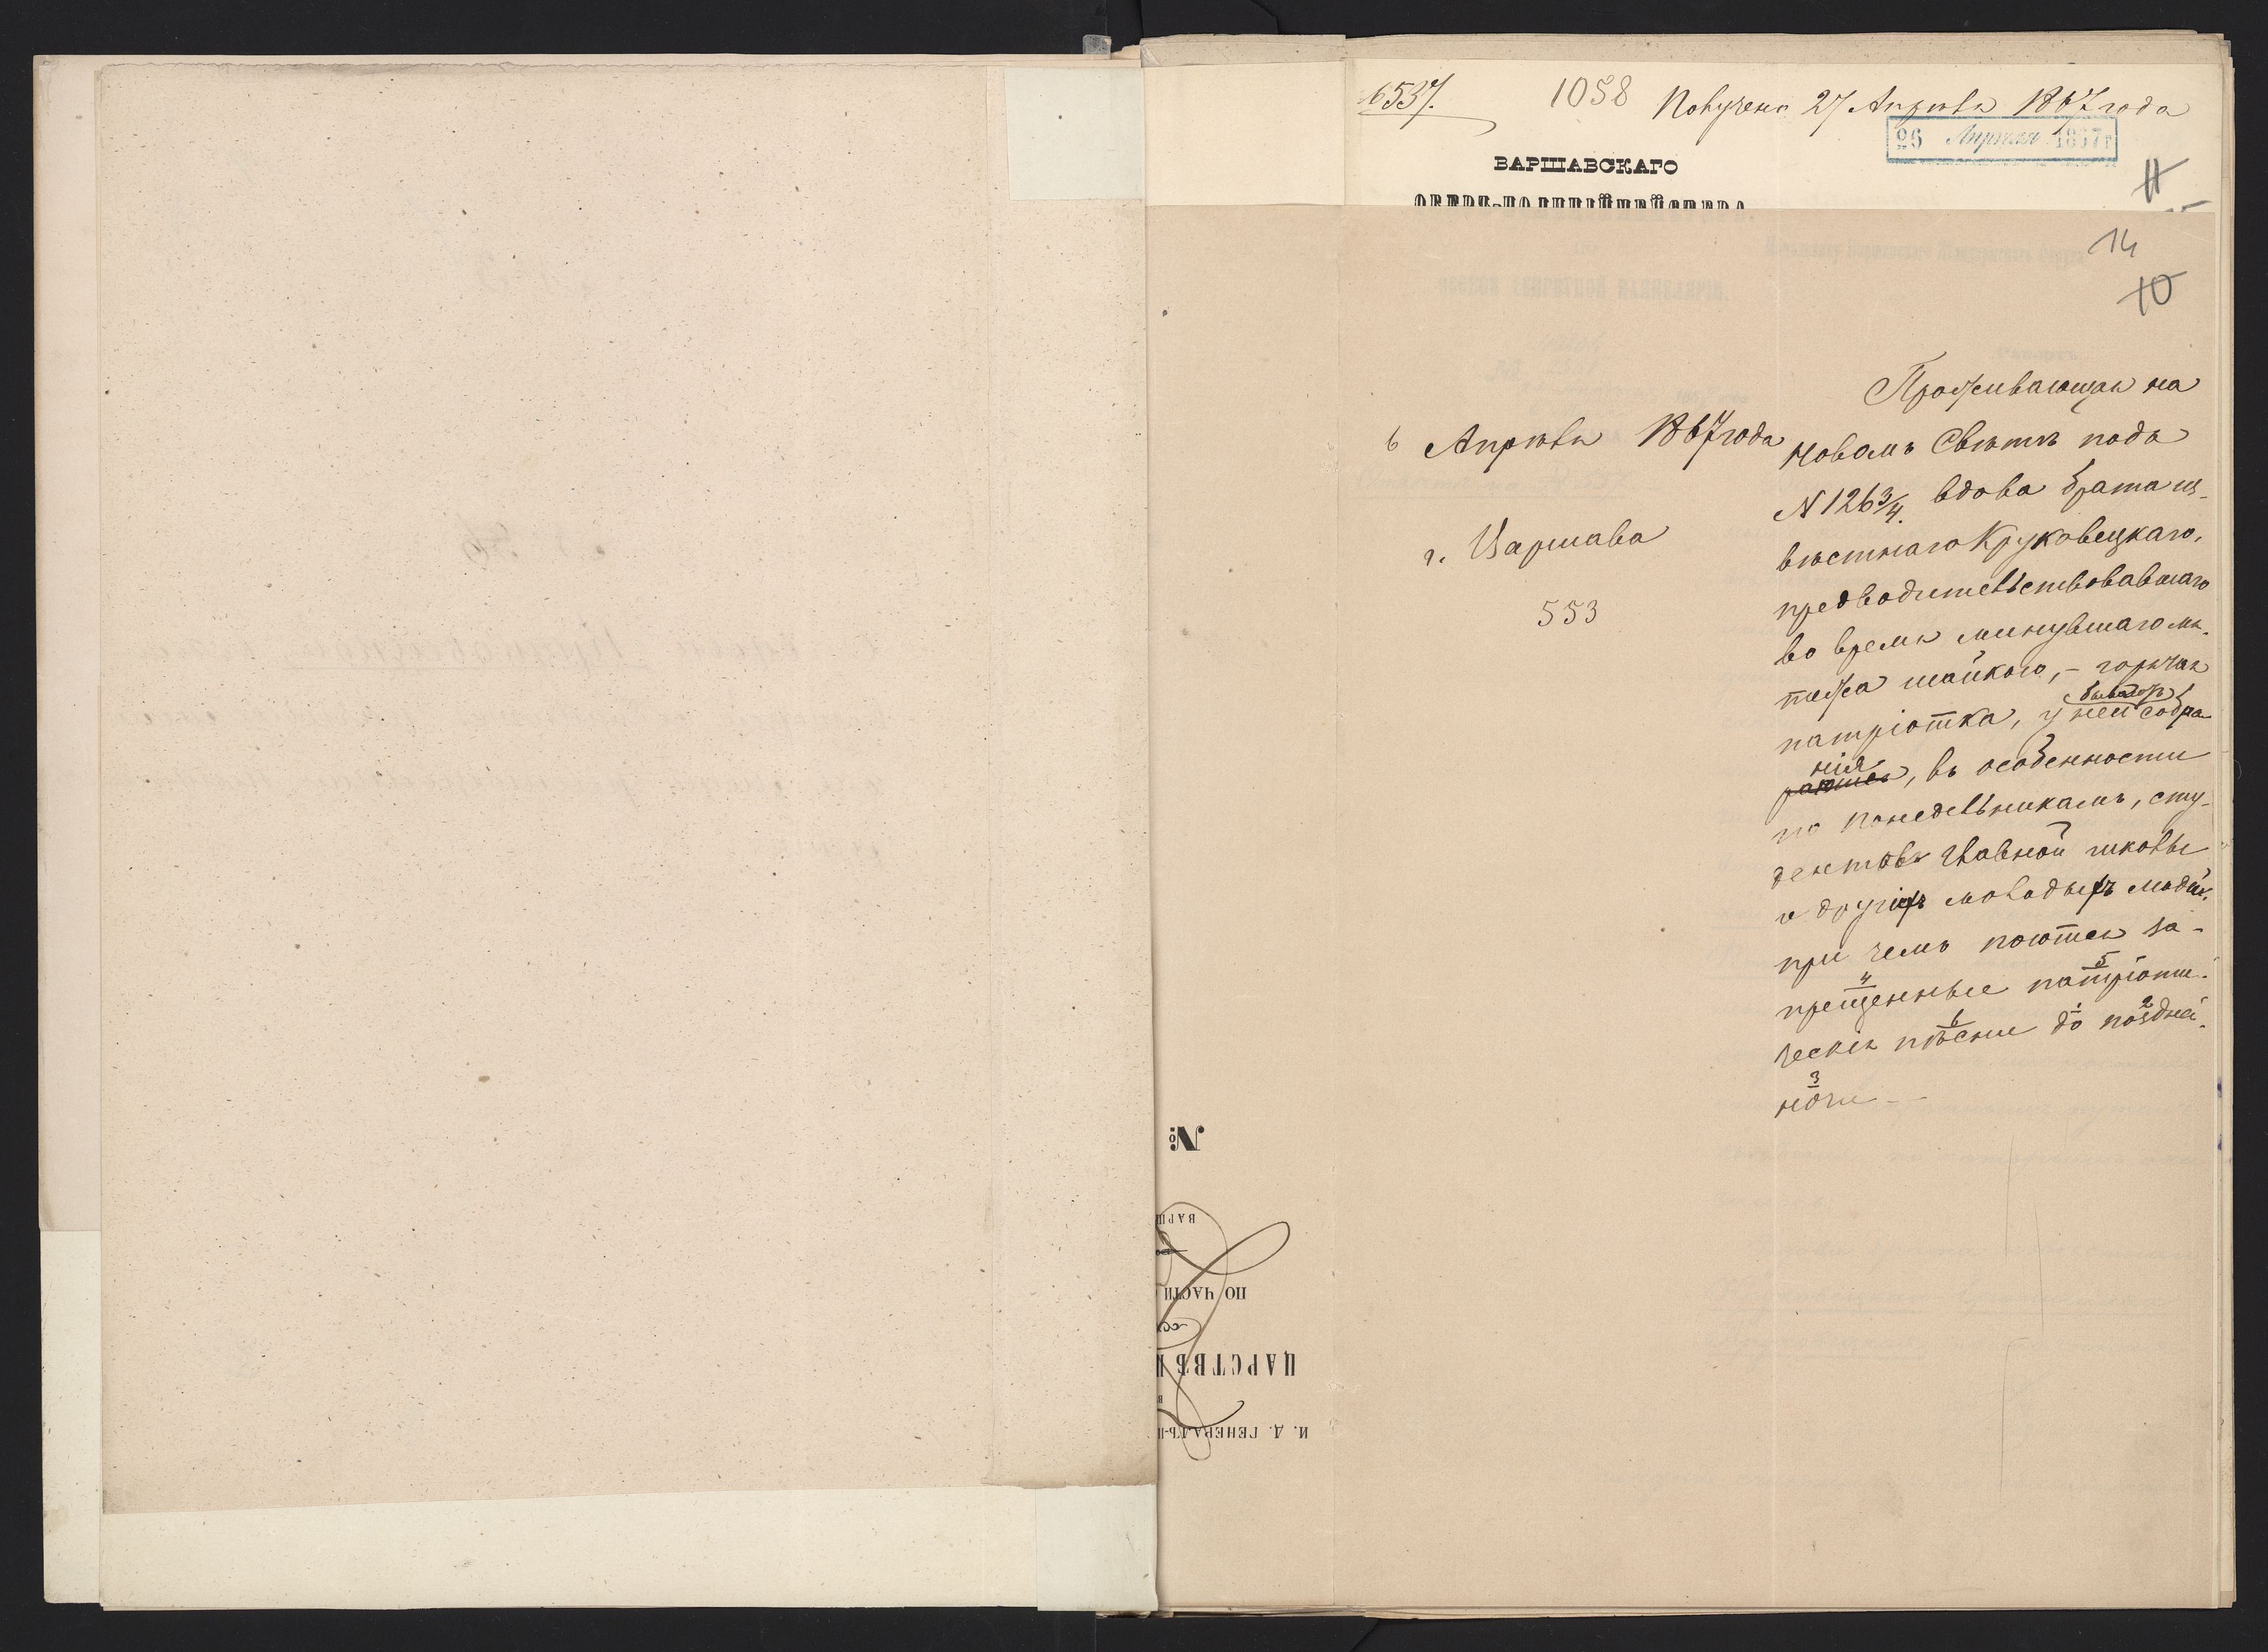 6537.
1058 Получено 27 Апрѣля 1867 года
26 Апрѣля 1867 г
ВАРШАВСКАГО
ОБЕРЪ-ПОЛИЦІЙМЕЙСТЕРА
11
14
10
Проживающая на
6 Апрѣля 1867 года
Новомъ Свѣтѣ подъ
N 1263/4. вдова брата из-
г. Варшава
вѣстнаго Круковецкаго,
553
предводительствовавшаго
во время минувшаго мя-
тежа шайкою, - горячая
патріотка, у ней бываютъ собра-
нія
раются, въ особенности
по понедѣльникамъ, сту-
дентовъ главной школы
и другихъ молодыхъ людей,
при чемъ поются за-
4 5
прещенные патріоти-
6 1 2
ческія пѣсни до поздней
3
ночи
№
ВАРШ
ПО ЧАСТИ
ЦАРСТВѢ
И. Д. ГЕНЕРАЛЪ-П